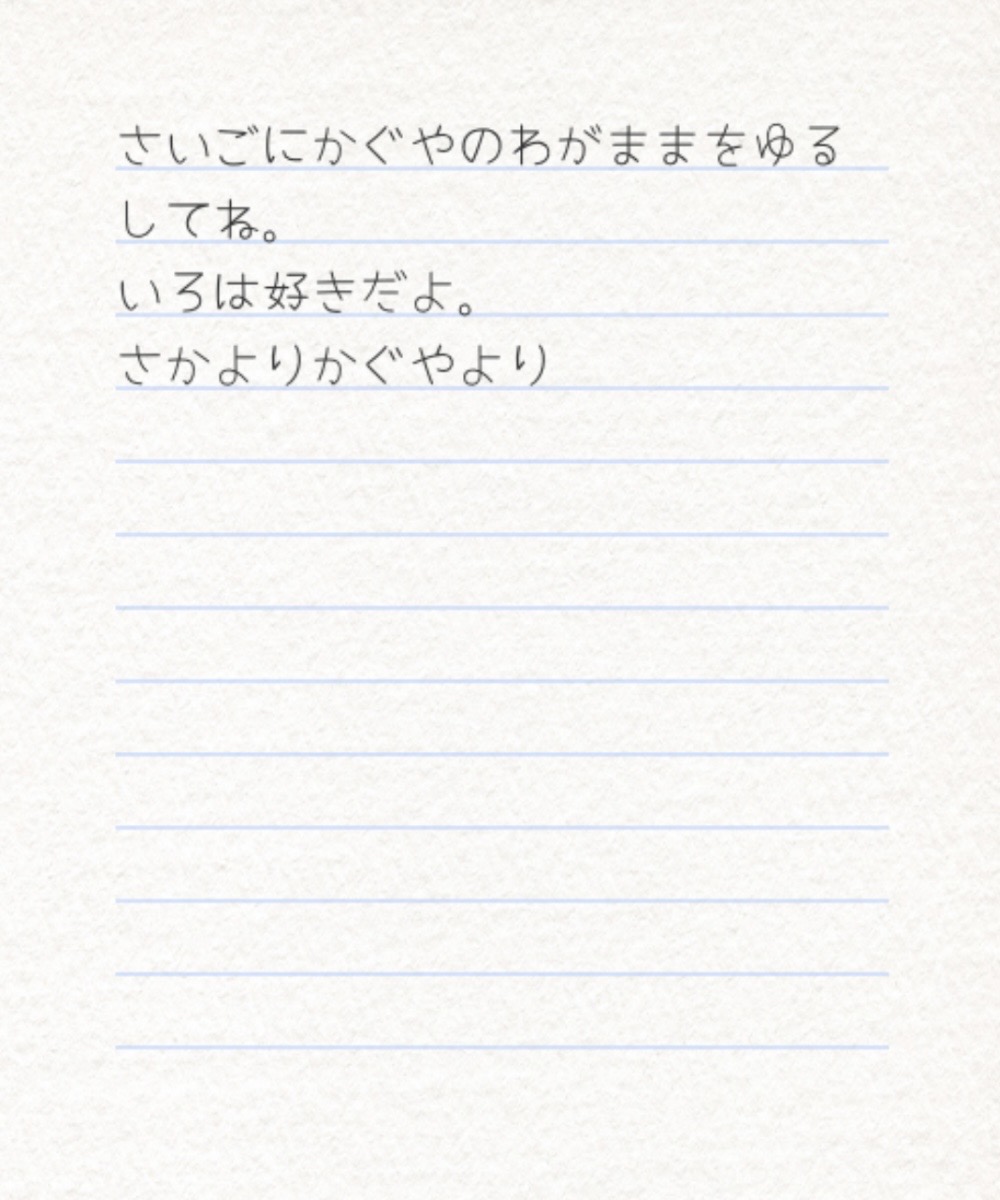 さいごにかぐやのわがままをゆる
してね。
いろは好きだよ。
さかよりかぐやより